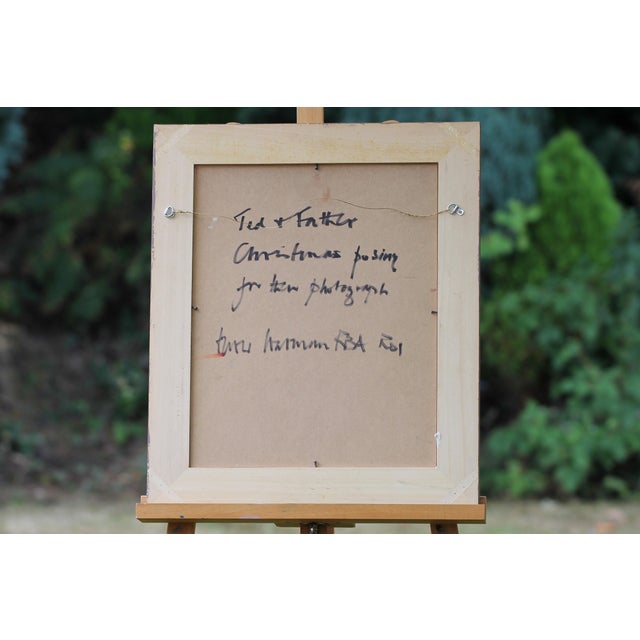 Ted + Father
Christmas posing
for their photograph
Harman RBA ROI